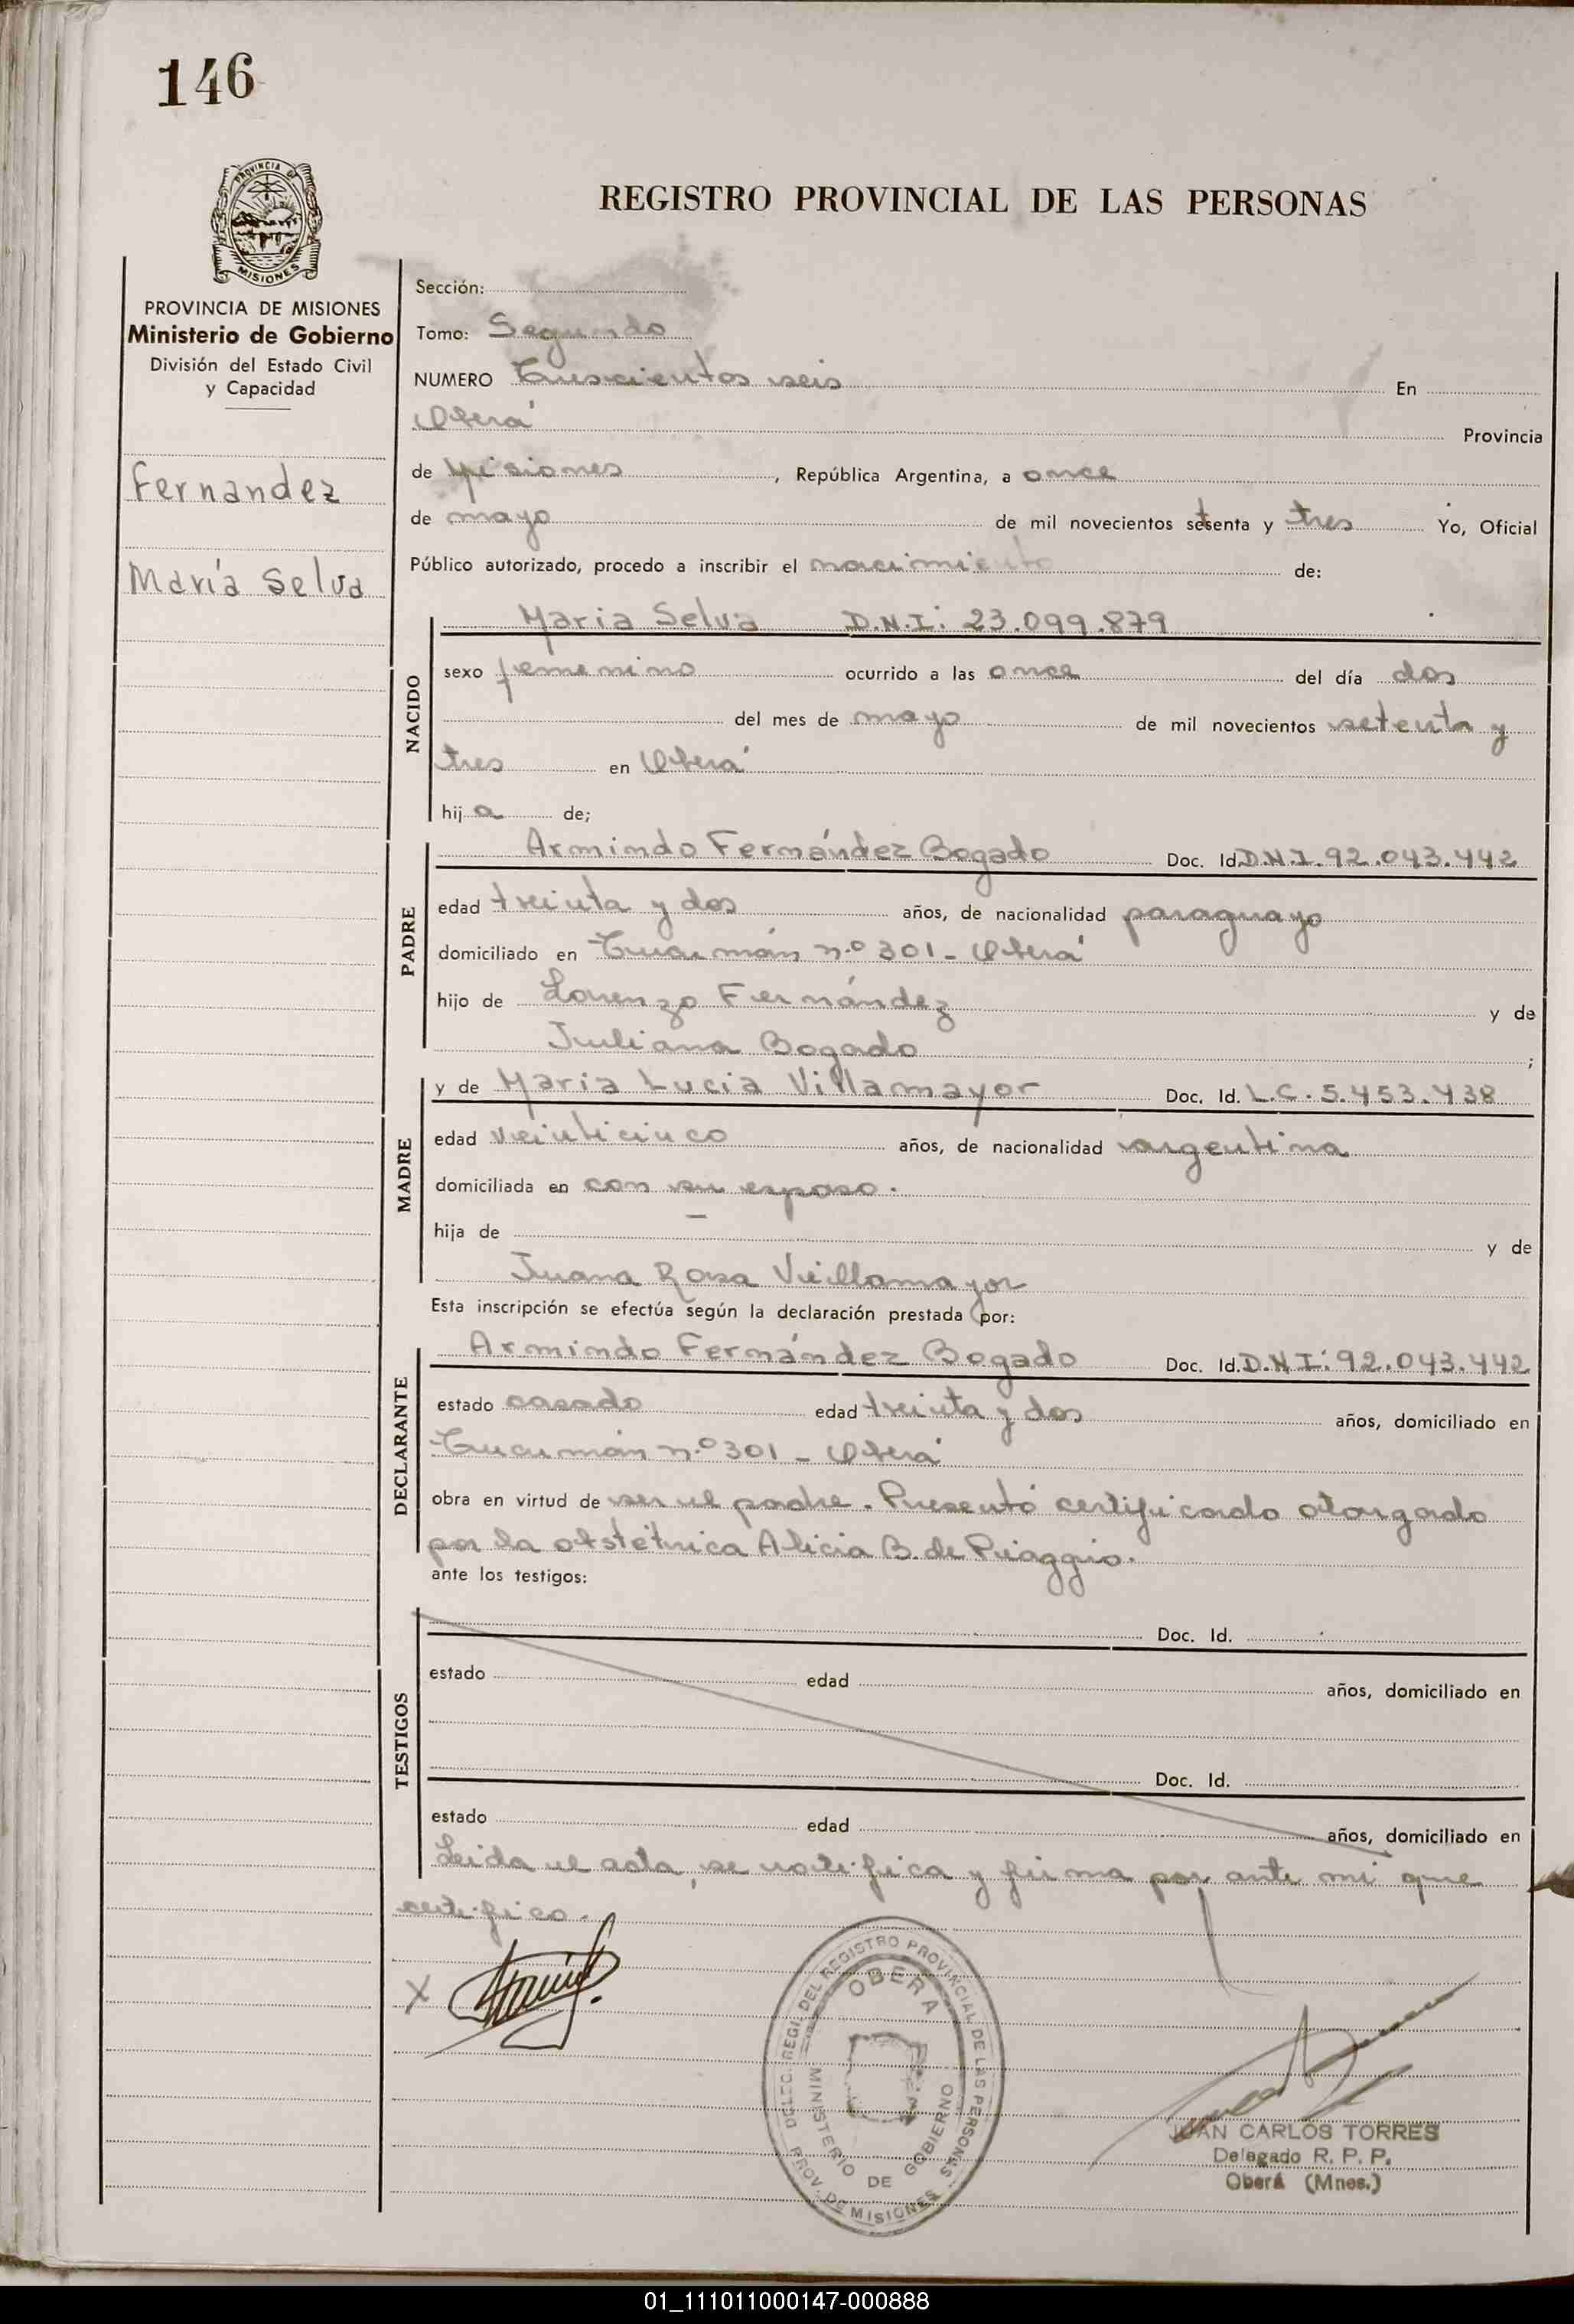 146
PROVINCIA DE
MISIONES
REGISTRO PROVINCIAL DE LAS PERSONAS
PROVINCIA DE MISIONES
Ministerio de Gobierno
División del Estado Civil
y Capacidad
Fernandez
María Selva
Sección:
Tomo: Segundo
NUMERO Trescientos seis En
Oberá Provincia
de Misiones, República Argentina, a once
de mayo de mil novecientos setenta y tres Yo, Oficial
Público autorizado, procedo a inscribir el nacimiento de:
NACIDO
Maria Selva D.N.I: 23.099.879
sexo femenino ocurrido a las once del día dos
del mes de mayo de mil novecientos setenta y
tres en Oberá
hija de;
PADRE
Armindo Fernández Bogado Doc. Id. D.N.I. 92.043.442
edad treinta y dos años, de nacionalidad paraguayo
domiciliado en Tucumán n.º 301 - Oberá
hijo de Lorenzo Fernández y de
Juliana Bogado ;
MADRE
y de Maria Lucia Villamayor Doc. Id. L.C. 5.453.438
edad veinticinco años, de nacionalidad argentina
domiciliada en con su esposo.
hija de — y de
Juana Rosa Villamayor
Esta inscripción se efectúa según la declaración prestada por:
DECLARANTE
Armindo Fernández Bogado Doc. Id. D.N.I: 92.043.442
estado casado edad treinta y dos años, domiciliado en
Tucumán n.º 301 - Oberá
obra en virtud de ser el padre. Presentó certificado otorgado
por la obstétrica Alicia B. de Priaggio.
ante los testigos:
TESTIGOS
Doc. Id.
estado edad años, domiciliado en
Doc. Id.
estado edad años, domiciliado en
Leida el acta, se ratifica y firma por ante mi que
certifico.
X
DELEG. REGI. DEL REGISTRO PROVINCIAL DE LAS PERSONAS
OBERA
MINISTERIO DE GOBIERNO
PROV. DE MISIONES
JUAN CARLOS TORRES
Delegado R. P. P.
Oberá (Mnes.)
01_111011000147-000888